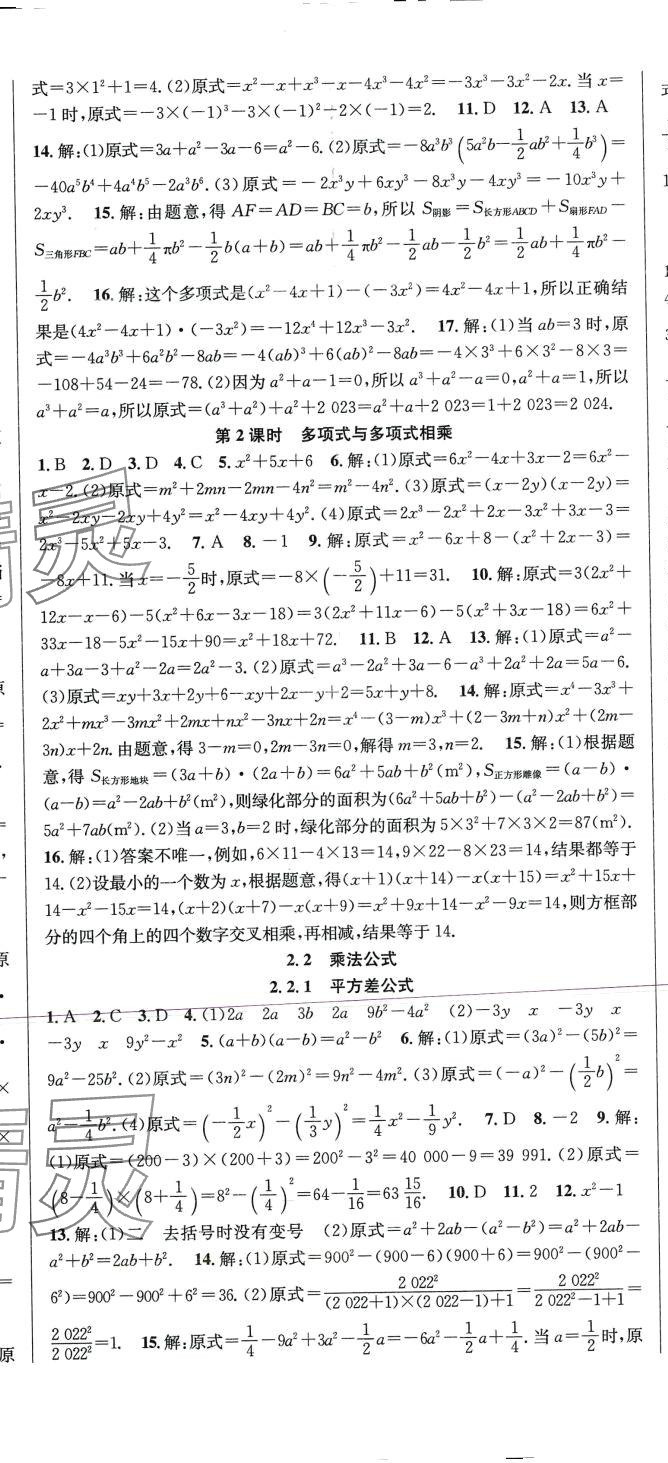 式=3×1²+1=4. (2)原式=x²-x+x³-x-4x³-4x²=-3x³-3x²-2x. 当 x=
-1时,原式=-3×(-1)³-3×(-1)²-2×(-1)=2. 11. D 12. A 13. A
14. 解:(1)原式=3a+a²-3a-6=a²-6. (2)原式=-8a³b³(5a²b-1/2ab²+1/4b³)=
-40a⁵b⁴+4a⁴b⁵-2a³b⁶. (3)原式=-2x³y+6xy³-8x³y-4xy³=-10x³y+
2xy³. 15. 解:由题意,得 AF=AD=BC=b,所以 S阴影=S长方形ABCD+S扇形FAD-
S三角形FBC=ab+1/4πb²-1/2b(a+b)=ab+1/4πb²-1/2ab-1/2b²=1/2ab+1/4πb²-
1/2b². 16. 解:这个多项式是(x²-4x+1)-(-3x²)=4x²-4x+1,所以正确结
果是(4x²-4x+1)·(-3x²)=-12x⁴+12x³-3x². 17. 解:(1)当 ab=3 时,原
式=-4a³b³+6a²b²-8ab=-4(ab)³+6(ab)²-8ab=-4×3³+6×3²-8×3=
-108+54-24=-78. (2)因为 a²+a-1=0,所以 a³+a²-a=0,a²+a=1,所以
a³+a²=a,所以原式=(a³+a²)+a²+2 023=a²+a+2 023=1+2 023=2 024.
第 2 课时 多项式与多项式相乘
1. B 2. D 3. D 4. C 5. x²+5x+6 6. 解:(1)原式=6x²-4x+3x-2=6x²-
x-2. (2)原式=m²+2mn-2mn-4n²=m²-4n². (3)原式=(x-2y)(x-2y)=
x²-2xy-2xy+4y²=x²-4xy+4y². (4)原式=2x³-2x²+2x-3x²+3x-3=
2x³-5x²+5x-3. 7. A 8. -1 9. 解:原式=x²-6x+8-(x²+2x-3)=
-8x+11. 当 x=-5/2时,原式=-8×(-5/2)+11=31. 10. 解:原式=3(2x²+
12x-x-6)-5(x²+6x-3x-18)=3(2x²+11x-6)-5(x²+3x-18)=6x²+
33x-18-5x²-15x+90=x²+18x+72. 11. B 12. A 13. 解:(1)原式=a²-
a+3a-3+a²-2a=2a²-3. (2)原式=a³-2a²+3a-6-a³+2a²+2a=5a-6.
(3)原式=xy+3x+2y+6-xy+2x-y+2=5x+y+8. 14. 解:原式=x⁴-3x³+
2x²+mx³-3mx²+2mx+nx²-3nx+2n=x⁴-(3-m)x³+(2-3m+n)x²+(2m-
3n)x+2n. 由题意,得 3-m=0,2m-3n=0,解得 m=3,n=2. 15. 解:(1)根据题
意,得 S长方形地块=(3a+b)·(2a+b)=6a²+5ab+b²(m²),S正方形雕像=(a-b)·
(a-b)=a²-2ab+b²(m²),则绿化部分的面积为(6a²+5ab+b²)-(a²-2ab+b²)=
5a²+7ab(m²). (2)当 a=3,b=2 时,绿化部分的面积为 5×3²+7×3×2=87(m²).
16. 解:(1)答案不唯一,例如,6×11-4×13=14,9×22-8×23=14,结果都等于
14. (2)设最小的一个数为 x,根据题意,得(x+1)(x+14)-x(x+15)=x²+15x+
14-x²-15x=14,(x+2)(x+7)-x(x+9)=x²+9x+14-x²-9x=14,则方框部
分的四个角上的四个数字交叉相乘,再相减,结果等于 14.
2.2 乘法公式
2.2.1 平方差公式
1. A 2. C 3. D 4. (1)2a 2a 3b 2a 9b²-4a² (2)-3y x -3y x
-3y x 9y²-x² 5. (a+b)(a-b)=a²-b² 6. 解:(1)原式=(3a)²-(5b)²=
9a²-25b². (2)原式=(3n)²-(2m)²=9n²-4m². (3)原式=(-a)²-(1/2b)²=
a²-1/4b². (4)原式=(-1/2x)²-(1/3y)²=1/4x²-1/9y². 7. D 8. -2 9. 解:
(1)原式=(200-3)×(200+3)=200²-3²=40 000-9=39 991. (2)原式=
(8-1/4)×(8+1/4)=8²-(1/4)²=64-1/16=63 15/16. 10. D 11. 2 12. x²-1
13. 解:(1)二 去括号时没有变号 (2)原式=a²+2ab-(a²-b²)=a²+2ab-
a²+b²=2ab+b². 14. 解:(1)原式=900²-(900-6)(900+6)=900²-(900²-
6²)=900²-900²+6²=36. (2)原式=2 022²/((2 022+1)×(2 022-1)+1)=2 022²/(2 022²-1+1)=
2 022²/2 022²=1. 15. 解:原式=1/4-9a²+3a²-1/2a=-6a²-1/2a+1/4. 当 a=1/2时,原